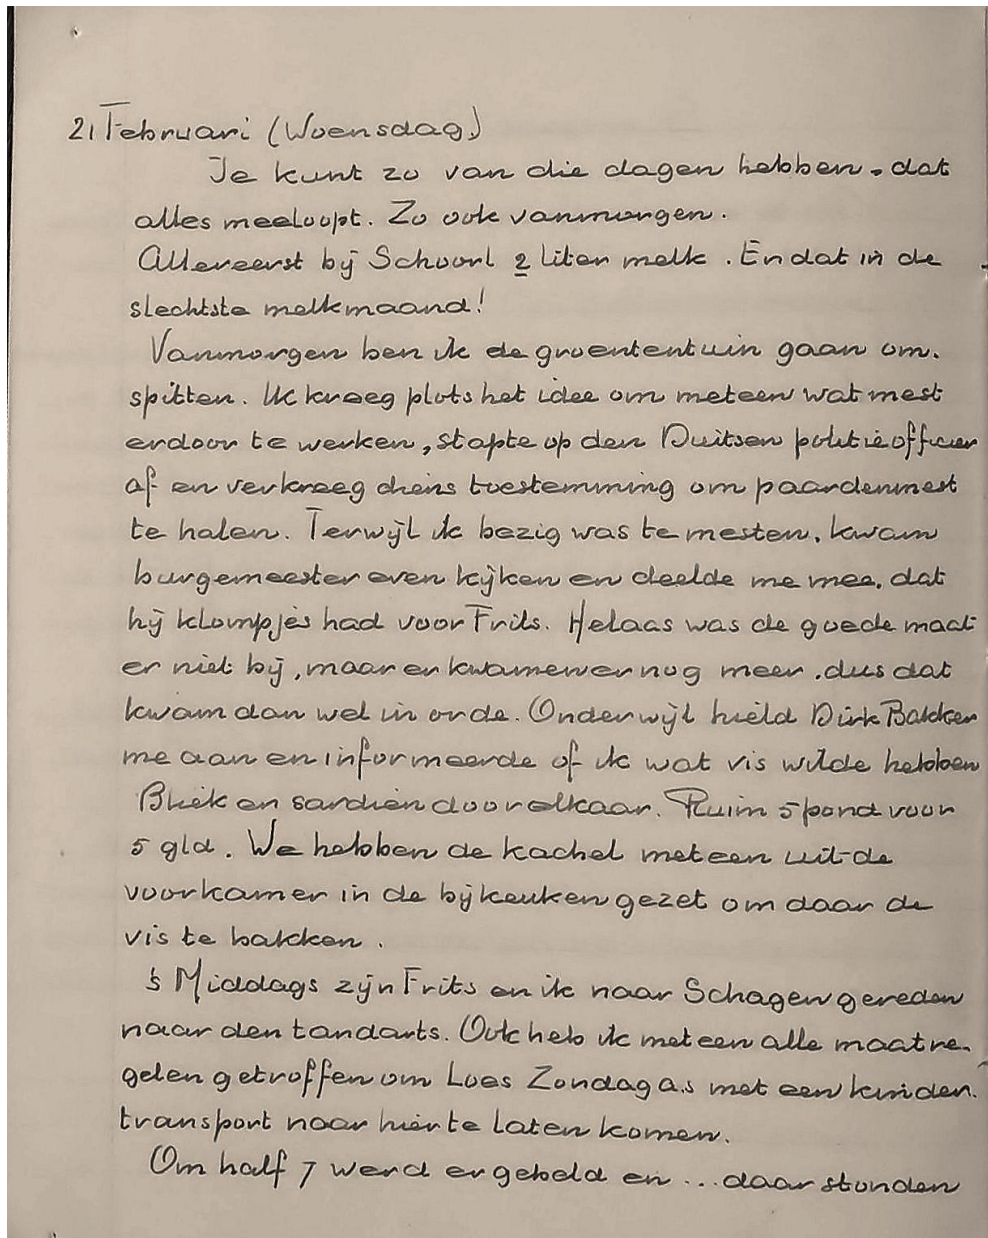 21 Februari (Woensdag)
Je kunt zo van die dagen hebben, dat
alles meeloopt. Zo ook vanmorgen.
Allereerst bij Schoorl 2 liter melk. En dat in de
slechtste melkmaand!
Vanmorgen ben ik de groententuin gaan om-
spitten. Ik kreeg plots het idee om meteen wat mest
erdoor te werken, stapte op den Duitsen politieofficier
af en verkreeg diens toestemming om paardenmest
te halen. Terwijl ik bezig was te mesten, kwam
burgemeester even kijken en deelde me mee, dat
hij klompjes had voor Frits. Helaas was de goede maat
er niet bij, maar er kwamen er nog meer, dus dat
kwam dan wel in orde. Onderwijl hield Dirk Bakker
me aan en informeerde of ik wat vis wilde hebben
Bliek en sardien door elkaar. Ruim 5 pond voor
5 gld. We hebben de kachel meteen uit de
voorkamer in de bijkeuken gezet om daar de
vis te bakken.
's Middags zijn Frits en ik naar Schagen gereden
naar den tandarts. Ook heb ik meteen alle maatre-
gelen getroffen om Loes Zondag a.s met een kinder-
transport naar hier te laten komen.
Om half 7 werd er gebeld en ... daar stonden